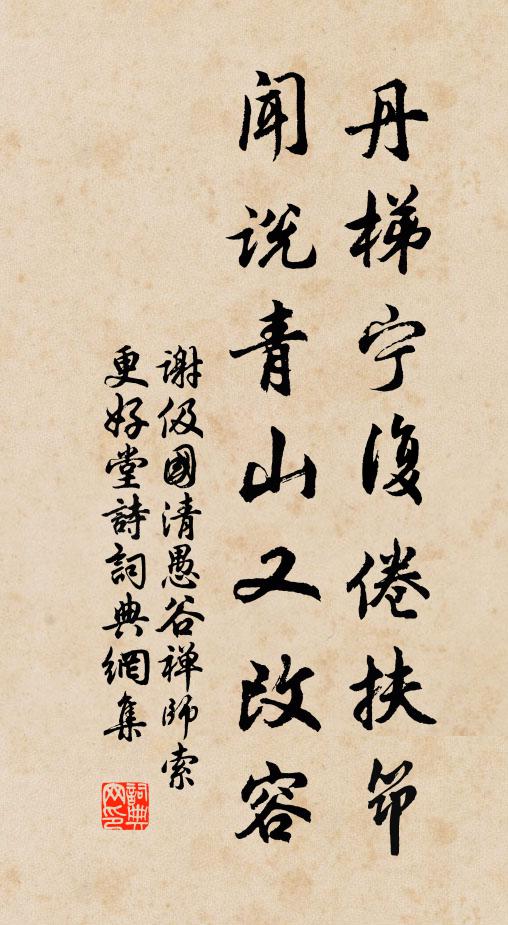 丹梯宁復倦扶筇
聞説青山又改容
謝伋國清愚谷禅師索
更好堂詩詞典網集
詞典网印